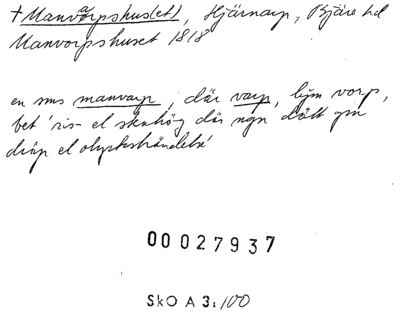 † Manvarpshus(et), Hjärnarp, Bjäre hd
Manvorpshuset 1818
en sms manvarp, där varp, ljm vorp,
bet 'ris- el stenhög där ngn dött gm
dråp el olyckshändelse'
00027937
SkO A 3:100